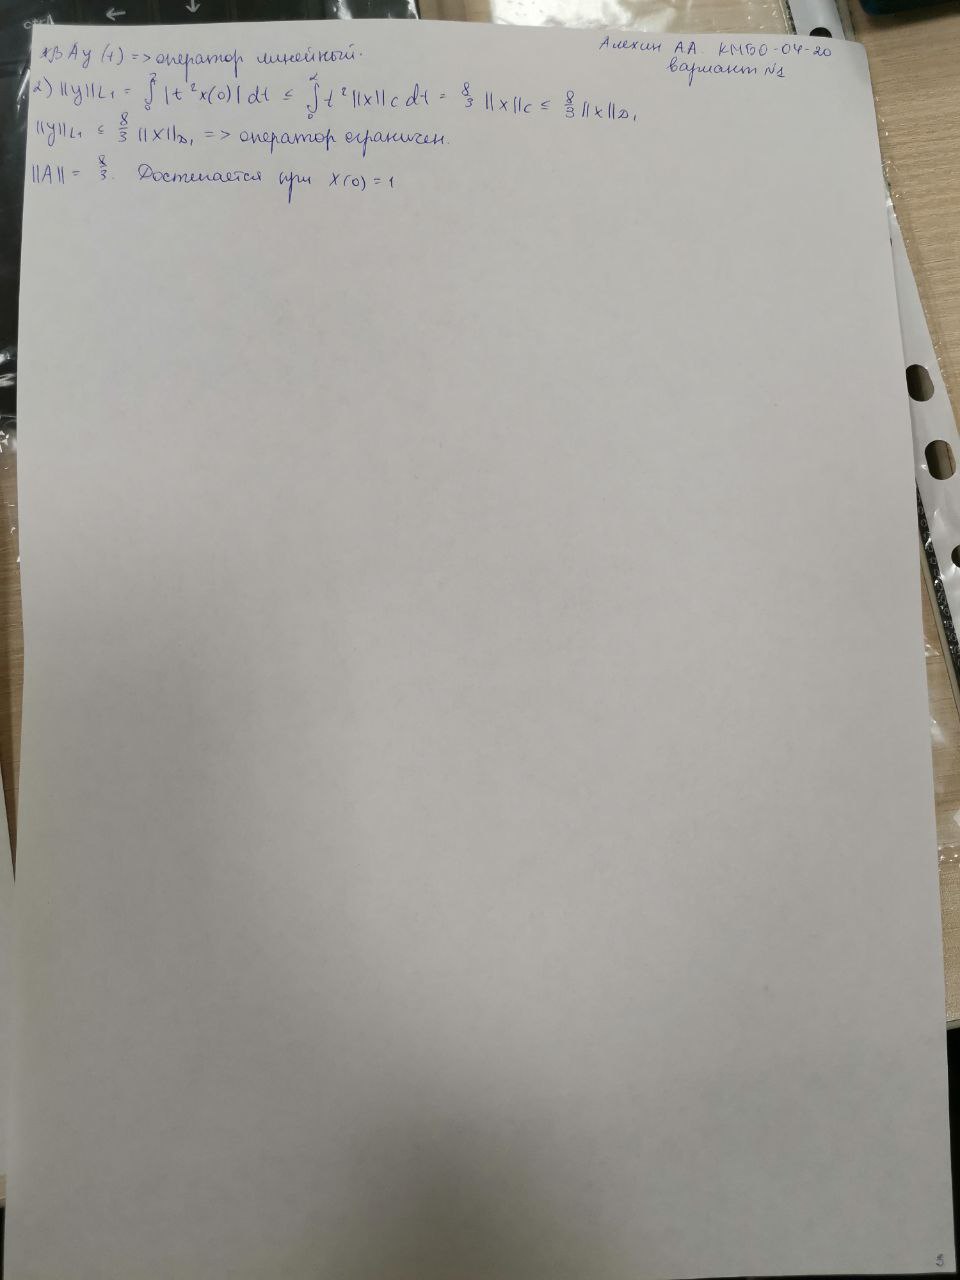 Алехин А.А. КМБО-04-20
вариант №1
+β Ay (t) => оператор линейный.
2) ||y||L₁ = ∫₀² |t²x(0)| dt ≤ ∫₀² t² ||x||c dt = 8/3 ||x||c ≤ 8/3 ||x||D₁
||y||L₁ ≤ 8/3 ||x||D₁ => оператор ограничен.
||A|| = 8/3. Достигается при x(0) = 1
3